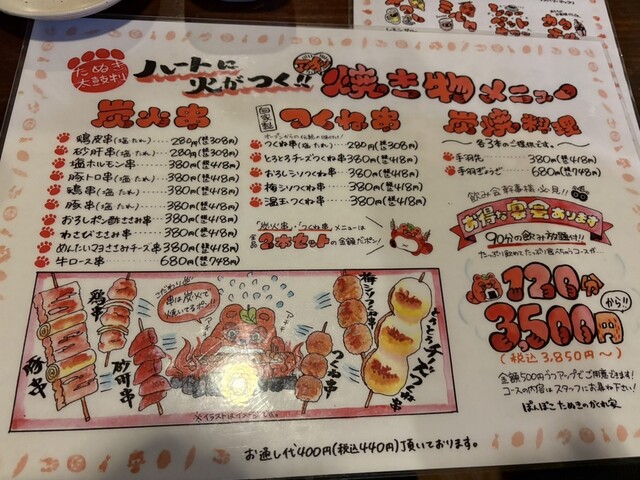 たぬき
太鼓判
ハートに
火がつく!!
焼き物メニュー
炭火串
鶏皮串(塩・たれ) 280円(替308円)
砂肝串(塩・たれ) 280円(替308円)
塩ホルモン串 380円(替418円)
豚トロ串(塩・たれ) 380円(替418円)
鶏串(塩・たれ) 380円(替418円)
豚串(塩・たれ) 380円(替418円)
おろしポン酢ささみ串 380円(替418円)
わさびささみ串 380円(替418円)
めんたいマヨささみチーズ串 380円(替418円)
牛ロース串 680円(替748円)
自家製
つくね串
つくね串(塩・たれ) 280円(替308円)
とろとろチーズつくね串 380円(替418円)
おろしシソつくね串 380円(替418円)
梅シソつくね串 380円(替418円)
温玉つくね串 380円(替418円)
「炭火串」「つくね串」メニューは
全品
2本セットの金額だポン!
炭焼料理
各3本のご提供です。
手羽先 380円(替418円)
手羽ぎょうざ 680円(替748円)
飲み会幹事様必見!!
お得な宴会あります
90分の飲み放題付!!
たっぷり飲めてたっぷり食べちゃうコースが
120分
3,500円から!!
(税込3,850円~)
金額500円ずつアップでご用意できます!
コースの内容はスタッフにお尋ね下さい!
ぽんぽこたぬきのかくれ家
こだわり
串は炭火で
焼いてるポン!!
豚串
鶏串
砂肝串
つくね串
梅シソつくね串
とろとろチーズつくね串
※イラストはイメージです。
お通し代400円(税込440円)頂いております。